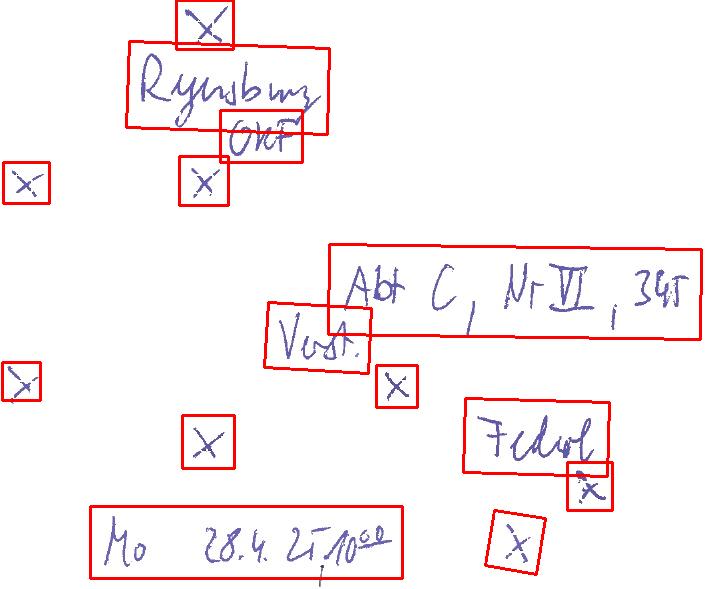 X
Regensburg
OKF
X X
Abt C, Nr VI, 345
Verst.
X X
X
X
Mo 28.4. 25, 10⁰⁰
X